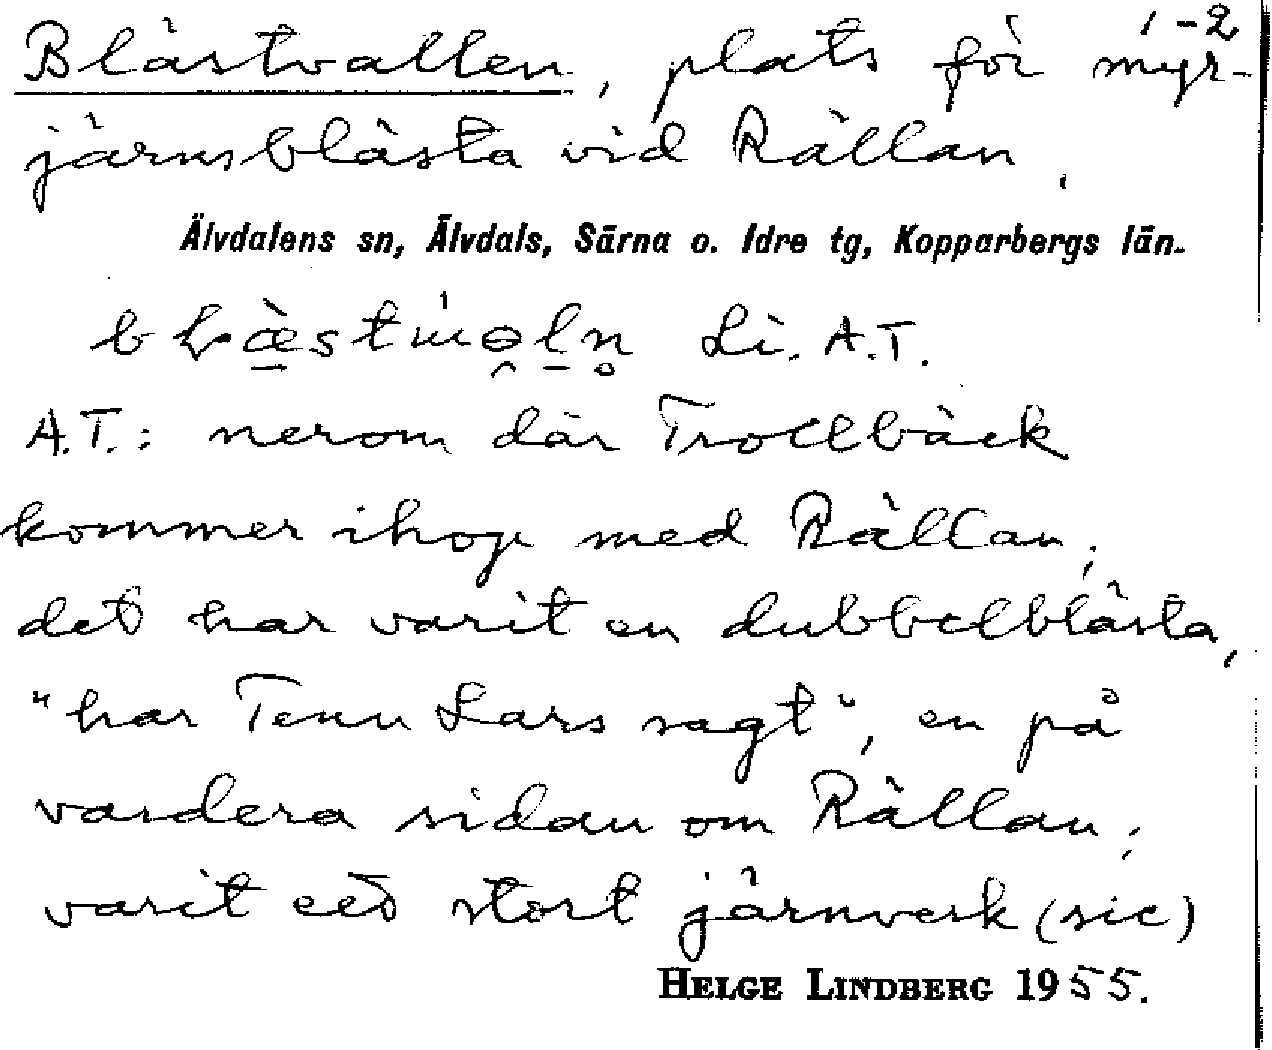 1-2
Blästvallen, plats för myr-
järnsblästa vid Rällan.
Älvdalens sn, Älvdals, Särna o. Idre tg, Kopparbergs län.
Li. A.T.
A.T.: nerom där Trollbäck
kommer ihop med Rällan;
det har varit en dubbelblästa,
"har Tenn Lars sagt", en på
vardera sidan om Rällan;
varit ett stort järnverk (sic)
HELGE LINDBERG 1955.